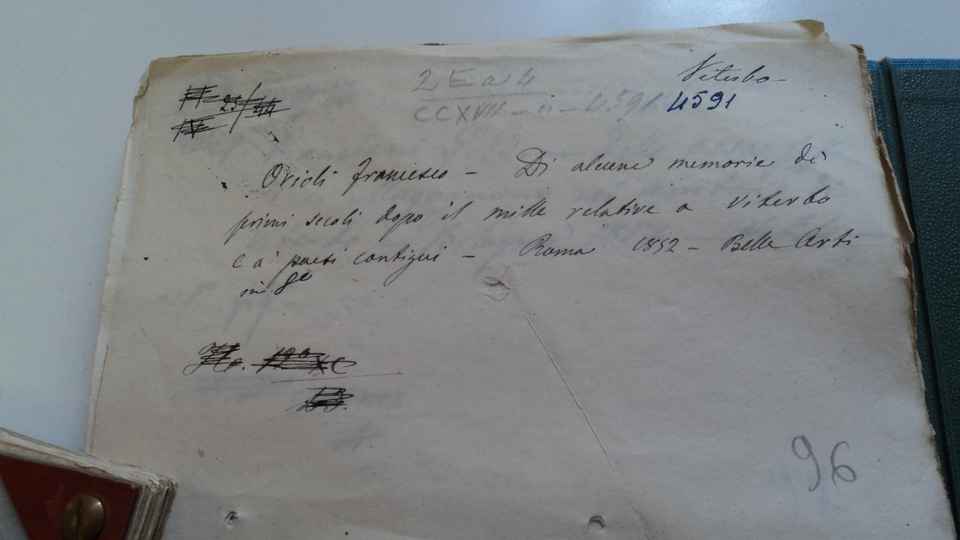 Viterbo -
2 E a 4
CCXVII - II - 4591
4591
Orioli Francesco - Di alcune memorie di
primi secoli dopo il mille relative a Viterbo
e a' paesi contigui - Roma 1852 - Belle Arti
in 8°
96